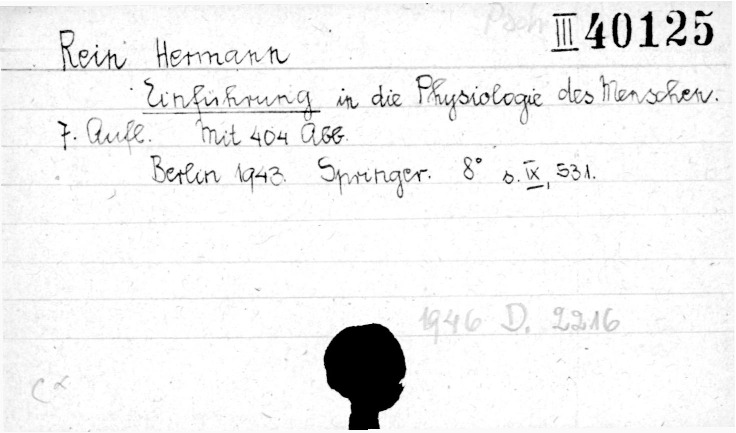 III 40125
Rein Hermann
Einführung in die Physiologie des Menschen.
7. Aufl. Mit 404 Abb.
Berlin 1943. Springer. 8° s. IX, 531.
1946 D. 2216